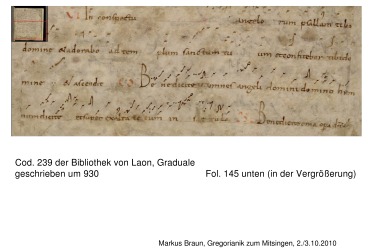 In conspectu angelo rum psallam tibi
domine et adorabo ad tem plum sanctum tu um et confitebor
mine et ascendit Be nedicite omnes angeli domini domino hym
num dicite et super exalta te eum in secula Benedicite
Cod. 239 der Bibliothek von Laon, Graduale
geschrieben um 930 Fol. 145 unten (in der Vergrößerung)
Markus Braun, Gregorianik zum Mitsingen, 2./3.10.2010